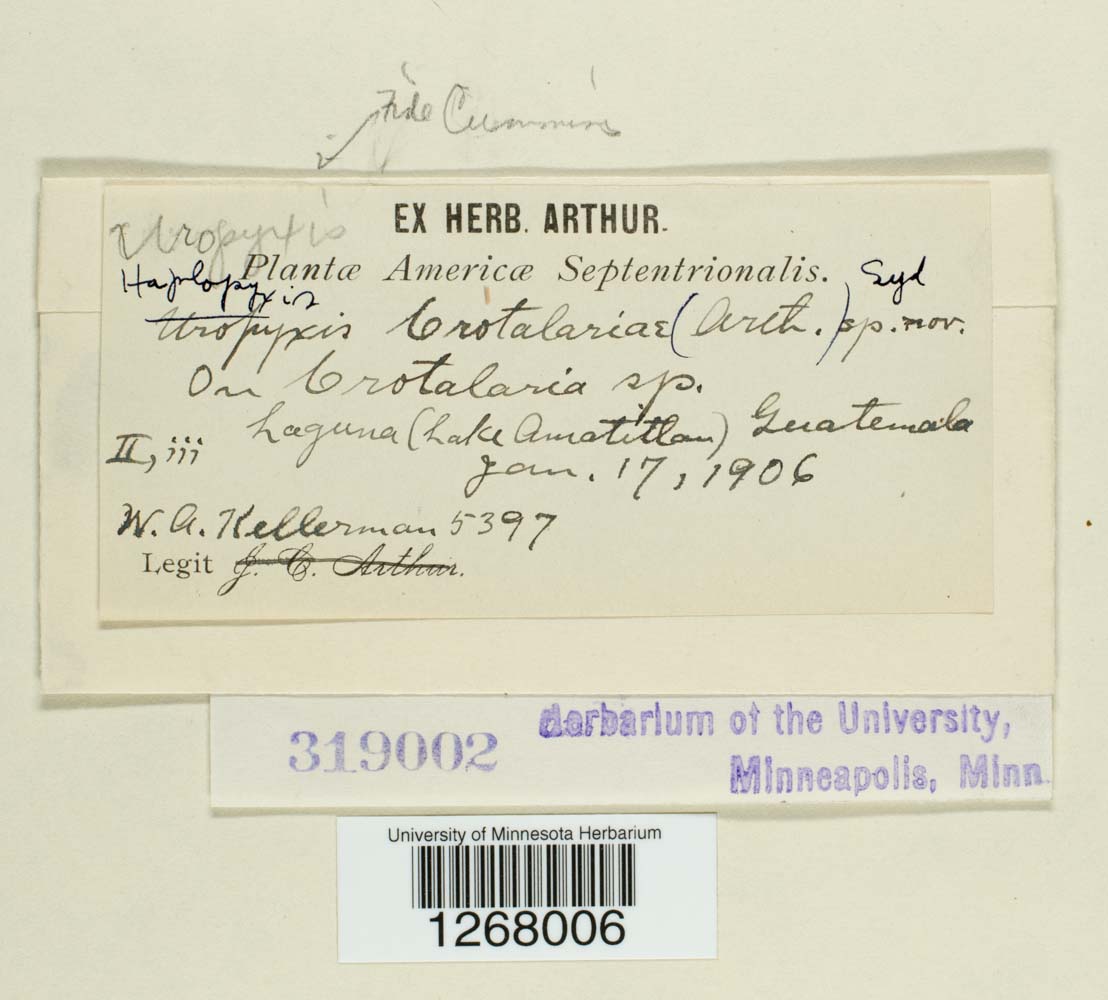 fide Cummins
Uropyxis
EX HERB. ARTHUR.
Plantæ Americæ Septentrionalis.
Haplopyxis Syd
Uropyxis Crotalariae (Arth.) sp. nov.
On Crotalaria sp.
Laguna (Lake Amatitlan) Guatemala
II, iii
Jan. 17, 1906
W. A. Kellerman 5397
Legit J. C. Arthur.
319002
Herbarium of the University,
Minneapolis, Minn.
University of Minnesota Herbarium
1268006